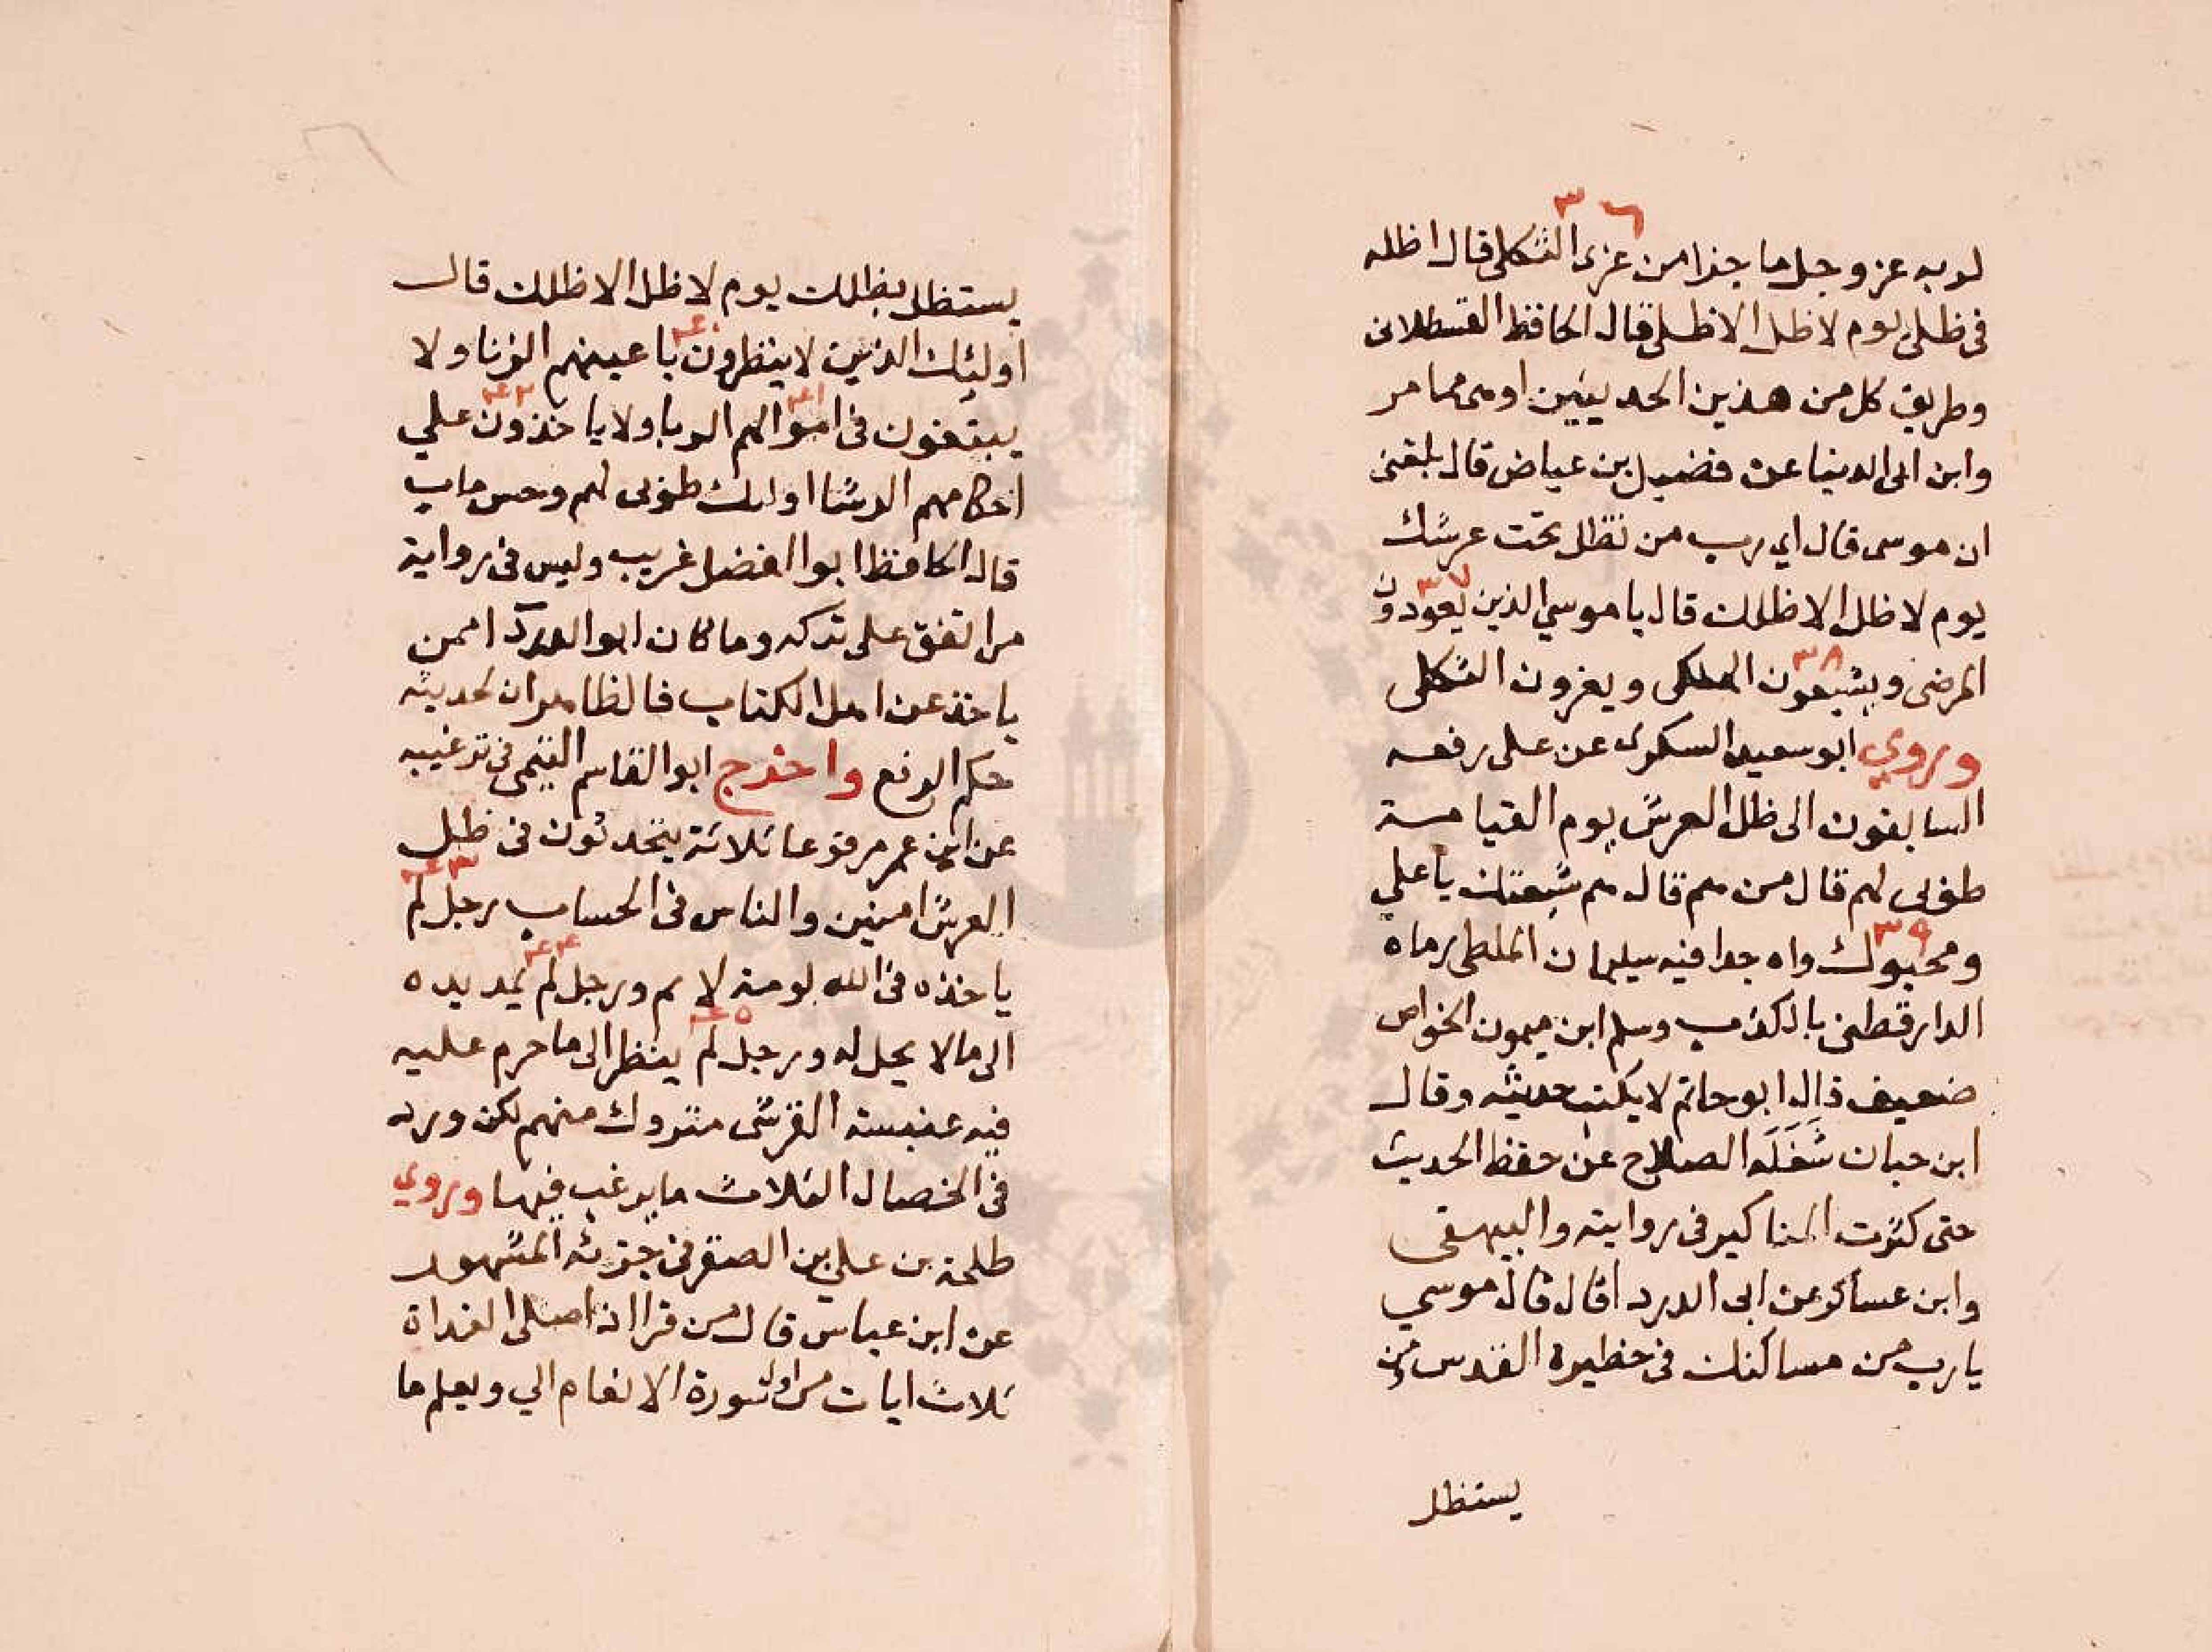 ٣٦
لربه عز وجل ما جزا من عزى الثكلى قال اظله
فى ظلى يوم لا ظل الا ظلى قال الحافظ القسطلانى
وطريق كل من هذين الحديثين اوهى مما مر
وابن ابى الدنيا عن فضيل بن عياض قال بلغنى
ان موسى قال اي رب من تظل تحت عرشك
يوم لا ظل الا ظلك قال يا موسي الذين يعودون ٣٧
المرضى ويشيعون الهلكى ويعزون الثكلى ٣٨
وروي ابو سعيد السكرى عن على رفعه
السابقون الى ظل العرش يوم القيامة
طوبى لهم قال من هم قال هم شيعتك يا علي
ومحبوك واه جدا فيه سليمان الملطى رماه ٣٩
الدارقطنى بالكذب وسلم ابن ميمون الخواص
ضعيف قال ابو حاتم لا يكتب حديثه وقال
ابن حبان شَغَلَه الصلاح عن حفظ الحديث
حتى كثرت المناكير فى روايته والبيهقى
وابن عساكر عن ابى الدردا قال قال موسي
يا رب من مساكنك فى حظيرة القدس ومن
يستظل
يستظل بظلك يوم لا ظل الا ظلك قال
اولئك الذين لا ينظرون باعينهم الزنا ولا ٤٠
يبتغون فى اموالهم الربا ولا ياخذون علي ٤١ ٤٢
احكامهم الرشا اولئك طوبى لهم وحسن ماب
قال الحافظ ابوا الفضل غريب وليس فى رواية
من اتفق على تركه وما كان ابو الدردا ممن
ياخذ عن اهل الكتاب فالظاهر ان لحديثه
حكم الرفع واخرج ابو القاسم التيمى فى ترغيبه
عن ابن عمر مرفوعا ثلاثة يتحدثون فى ظل
العرش امنين والناس فى الحساب رجل لم ٤٣
ياخذه فى الله لومة لائم ورجل لم يمد يده ٤٤
الى مالا يحل له ورجل لم ينظر الى ما حرم عليه ٤٥
فيه عنبسة القرشى متروك منهم لكن ورد
فى الخصال الثلاث ما يرغب فيها وروي
طلحة بن علي بن الصقر فى جزئه المشهور
عن ابن عباس قال من قرا اذا صلى الغداة
ثلاث ايات من اول سورة الانعام الي ويعلم ما